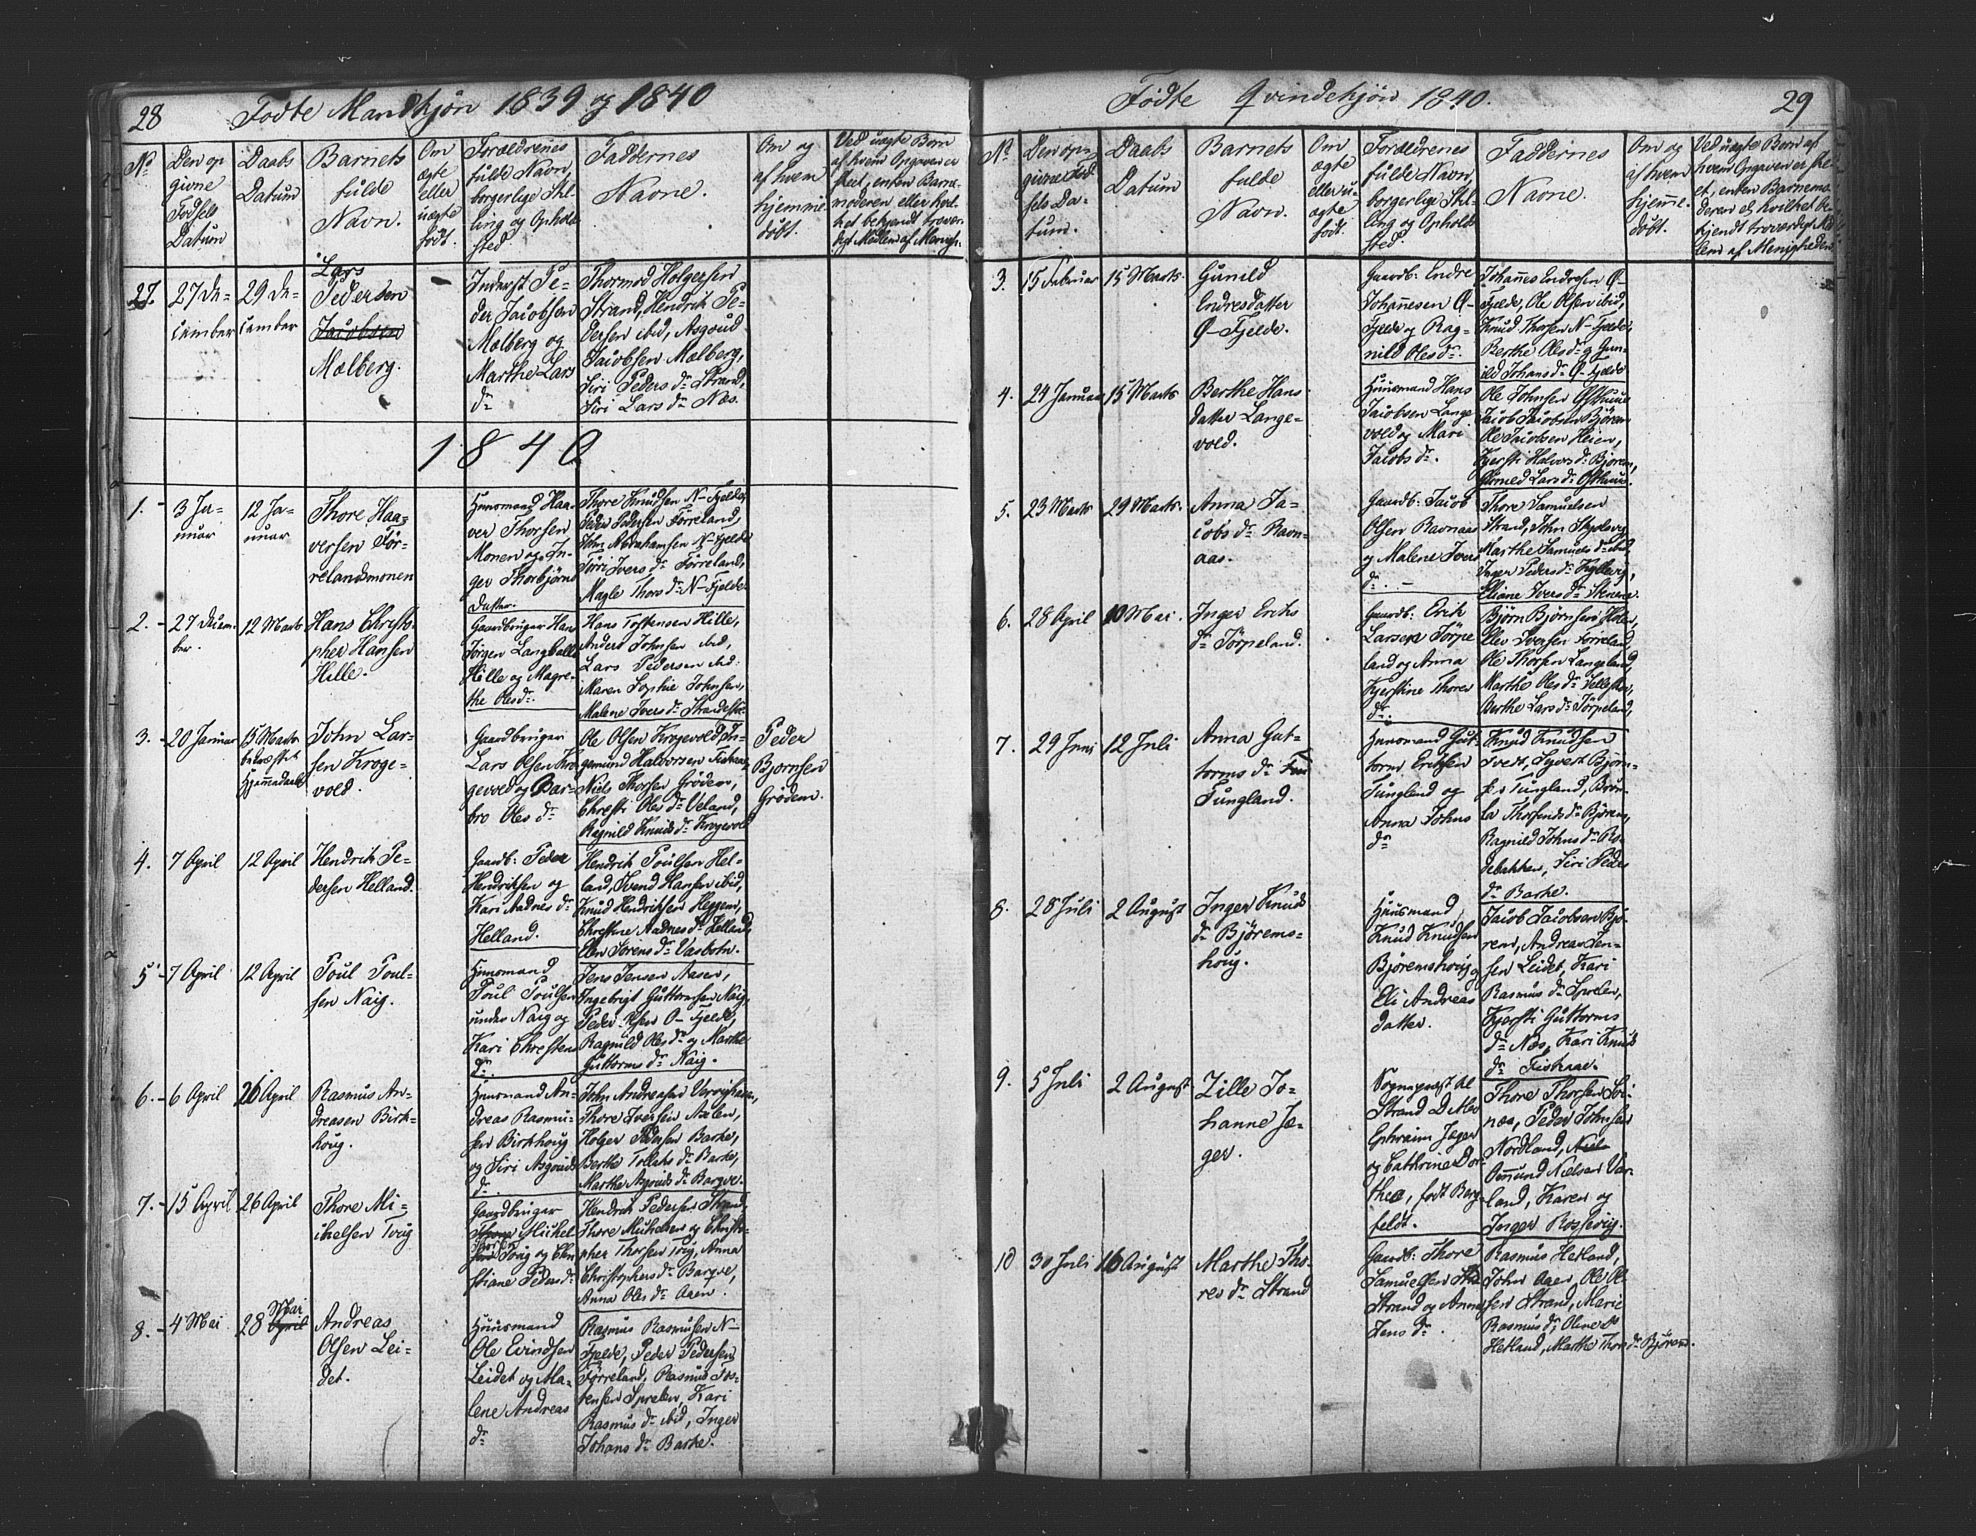 28
Fødte Mandkjøn 1839 og 1840
No
Den op
givne
Fødsels
Datum
Daabs
Datum
Barnets
fulde
Navn.
Om
ægte
eller
uægte
født.
Forældrenes
fulde Navn,
borgerlige Stil-
ling og Ophold
sted
Faddernes
Navne.
Om og
af hvem
hjemme
døbt.
Ved uægte Børn
af hvem Opgaven er
skeet, enten Barne-
moderen eller hvil-
ket bekjendt trover-
digt Medlem af Menigh.
27.
27 De-
cember
29 De-
cember
Lars
Pedersen
Jacobsen
Mælberg.
Inderst Pe-
der Jacobsen
Mælberg og
Marthe Lars
dr
Thormod Holgersen
Strand, Hendrik Pe-
dersen ibid, Asgoud
Jacobsen Mælberg,
Siri Peders dr Strand,
Siri Lars dr Næs.
1840
1.
3 Ja-
nuar
12 Ja-
nuar
Thore Haa-
versen Før-
relandsmonen
Huusmand Haa-
ver Thorsen
Monen og In-
ger Thorbjørns
Datter.
Thore Knudsen N-Fjelde,
Peder Pedersen Førreland,
John Abrahamsen N-Fjelde
Siri Ivers dr Førreland,
Magle Thors dr N-Fjelde
2.
27 Decem-
ber
12 Marts
Hans Christo
pher Hansen
Hille.
Gaardbruger Hans
Jørgen Langballe
Hille og Magre-
the Oles dr.
Hans Tostensen Hille,
Anders Johnsen ibid,
Lars Pedersen ibid.
Maren Sophie Johnsen,
Malene Ivers dr
3.
20 Januar
15 Marts
bekræftet
Hjemmedaab
John Lar-
sen Kroge-
vold.
Gaardbruger
Lars Olsen Kro
gevold og Bar-
bro Oles dr
Ole Olsen Krogevold, In-
gemund Halvorsen
Niels Thorsen Grødem,
Chresti Oles dr Veland,
Ragnild Knuds dr Krogevold
Peder
Bjørnsen
Grødem.
4.
7 April
12 April
Hendrik Pe-
dersen Helland.
Gaardb: Peder
Hendriksen og
Kari Aadnes dr
Helland.
Hendrik Poulsen Hel-
land, Svend Hansen ibid,
Knud Hendriksen Heggem,
Chrestine Aadnes dr Helland,
Elen Sørens dr Vasbotn.
5
7 April
12 April
Poul Poul-
sen Naig.
Huusmand
Poul Poulsen
under Naig og
Kari Chrestens
dr.
Jens Jensen Aasen,
Ingebrigt Guttormsen Naig,
Peder Olsen O-Fjelde,
Ragnild Oles dr og Marthe
Guttorms dr Naig.
6.
6 April
26 April
Rasmus An-
dreasen Birk-
houg.
Huusmand An-
dreas Rasmu-
sen Birkhoug
og Siri Asgouds
dr.
John Andreasen
Thore Iversen Aalen,
Holger Pedersen Barke,
Berthe Tollaks dr Barke,
Marthe Asgouds dr Barqve.
7.
15 April
26 April
Thore Mi-
chelsen Tvig
Gaardbruger
Thore Mickel
Tvig og Chri-
stiane Peders dr
Hendrik Pedersen Strand,
Thore Michelsen og Christo-
pher Thorsen Tvig, Anna
Christophers dr Barqve,
Anna Oles dr Aaen.
8.
4 Mai
28 Mai
April
Andreas
Olsen Lei-
det.
Huusmand
Ole Evindsen
Leidet og Ma-
lene Andreas
dr
Rasmus Rasmusen N-
Fjelde, Peder Pedersen
Førreland, Rasmus Tos-
tensen Sprelen, Kari
Rasmus dr ibid, Inger
Johans dr Barke.
Fødte Qvindekjøn 1840.
29
No
Den op-
givne Fød-
sels Da-
tum.
Daabs
Datum
Barnets
fulde
Navn.
Om
ægte
eller u-
ægte
født.
Forældrenes
fulde Navn,
borgerlige Stil-
ling og Opholds
sted.
Faddernes
Navne.
Om og
af hvem
hjemme
døbt.
Ved uægte Børn af
hvem Opgaven er ske-
et, enten Barnemo-
deren el. hvilket be-
kjendt troverdigt Med-
lem af Menigheden
3.
15 Februar
15 Marts
Gunild
Endresdatter
Ø-Fjelde.
Gaardb: Endre
Johannesen Ø-
Fjelde og Rag-
nild Oles dr.
Johannes Endresen Ø-
Fjelde, Ole Olsen ibid,
Knud Thorsen N-Fjelde,
Berthe Oles dr og Gun-
ild Johans dr Ø-Fjelde
4.
24 Januar
15 Marts
Berthe Hans
datter Lange-
vold.
Huusmand Hans
Jacobsen Lange
vold og Mari
Jacobs dr.
Ole Johnsen Østhuus
Jacob Jacobsen Bjøren
Ole Jacobsen Heien,
Kjersti Halvors dr Bjørem,
Gunild Lars dr Østhuus.
5.
23 Marts
29 Marts
Anna Ja-
cobs dr Ravn-
aas.
Gaardb: Jacob
Olsen Ravnaas
og Malene Ivers
dr.
Thore Samuelsen
Strand, John
Marthe Samuels dr ibid,
Inger Peders dr
Eliane Ivers dr
6.
28 April
10 Mai.
Inger Eriks
dr Tørpeland.
Gaardb: Erik
Larsen Tørpe
land og Anna
Kjerstine Thores
dr.
Bjørn Bjørnsen Holen,
Elev Iversen Førreland
Ole Thorsen Langeland,
Marthe Oles dr
Berthe Lars dr Tørpeland,
7.
29 Juni
12 Juli
Anna Gut-
torms dr
Tungland.
Huusmand Gut-
torm Eriksen
Tungland og
Anna Johns
dr
Knud Knudsen
Tvedt, Syvert Bjørn-
sen Tungland, Brøn-
la Thorsends dr Bjørem,
Ragnild Johns dr Ro-
debakken, Siri Peders
dr Barke.
8.
28 Juli
2 August
Inger Knuds
dr Bjørems-
houg.
Huusmand
Knud Knudsen
Bjøremshoug og
Eli Andreas
datter.
Jacob Jacobsen Bjø-
rem, Andreas Jen-
sen Leidet, Kari
Rasmus dr Sprelen,
Kjersti Guttorms
dr Næs, Kari Knuds
dr Fiskaae.
9.
5 Juli
2 August
Zille Jo-
hanne Jæ-
ger.
Sognepræst til
Strand
Ephraim Jæger
og Cathrine Dor-
thea, født Berg-
feldt.
Thore Thorsen
Peder Johnsen
Nordland,
Omund Nielsen Vat-
land, Karen og
Inger Rossevig.
10
30 Juli
16 August
Marthe Tho-
res dr Strand
Gaardb: Thore
Samuelsen
Strand og Anna
Jens dr.
Rasmus Hetland,
John Aaen, Ole Ol-
sen Strand, Marie
Rasmus dr, Oline
Hetland, Marthe Thors dr Bjørem.